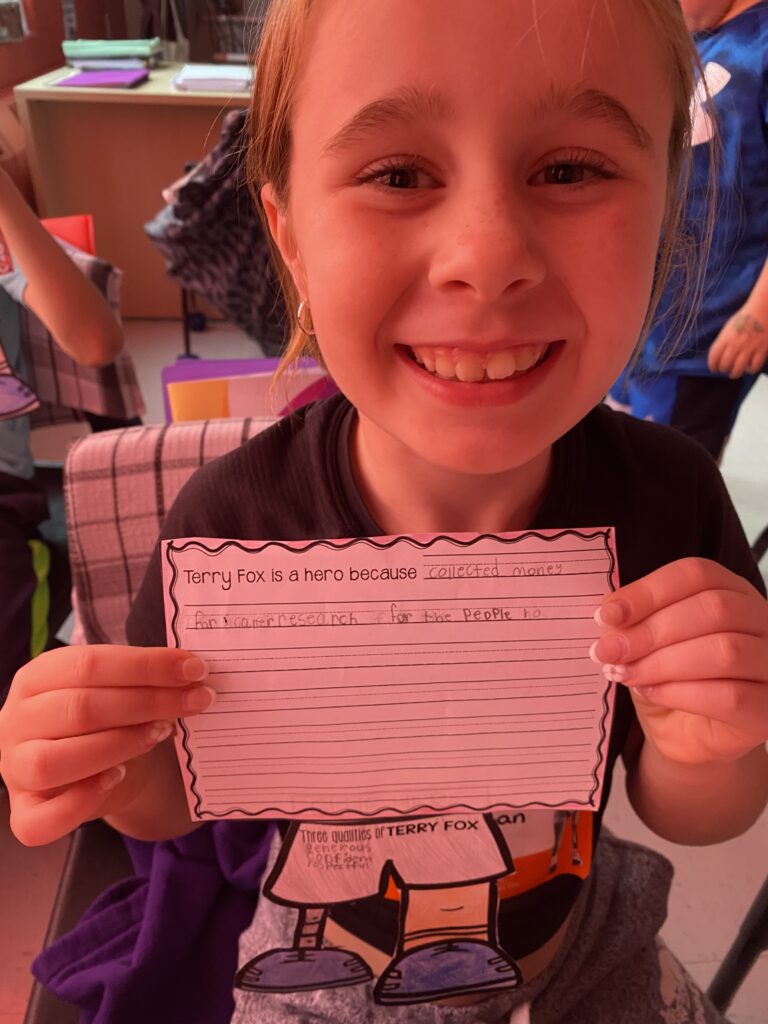 Terry Fox is a hero because collected money
for cancer research for the people ho
Three qualities of TERRY FOX
generous
confident
respectful
an